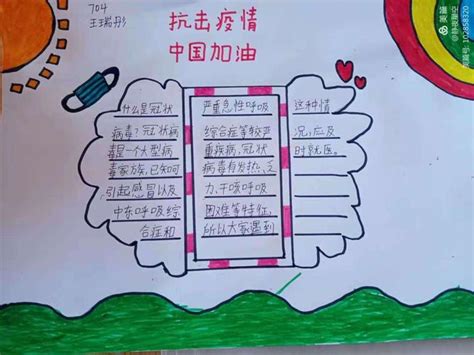 704
王瑞彤
抗击疫情
中国加油
什么是冠状
病毒?冠状病
毒是一个大型病
毒家族,已知可
引起感冒以及
中东呼吸综
合症和
严重急性呼吸
综合症等较严
重疾病,冠状
病毒有发热、乏
力、干咳呼吸
困难等特征,
所以大家遇到
这种情
况,应及
时就医。
美篇
@静夜星空
美篇号:102858320